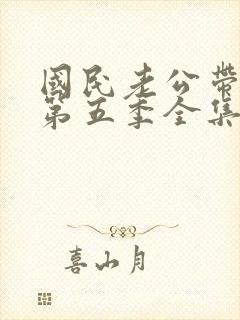 國民老公帶
第五季全集
喜山月